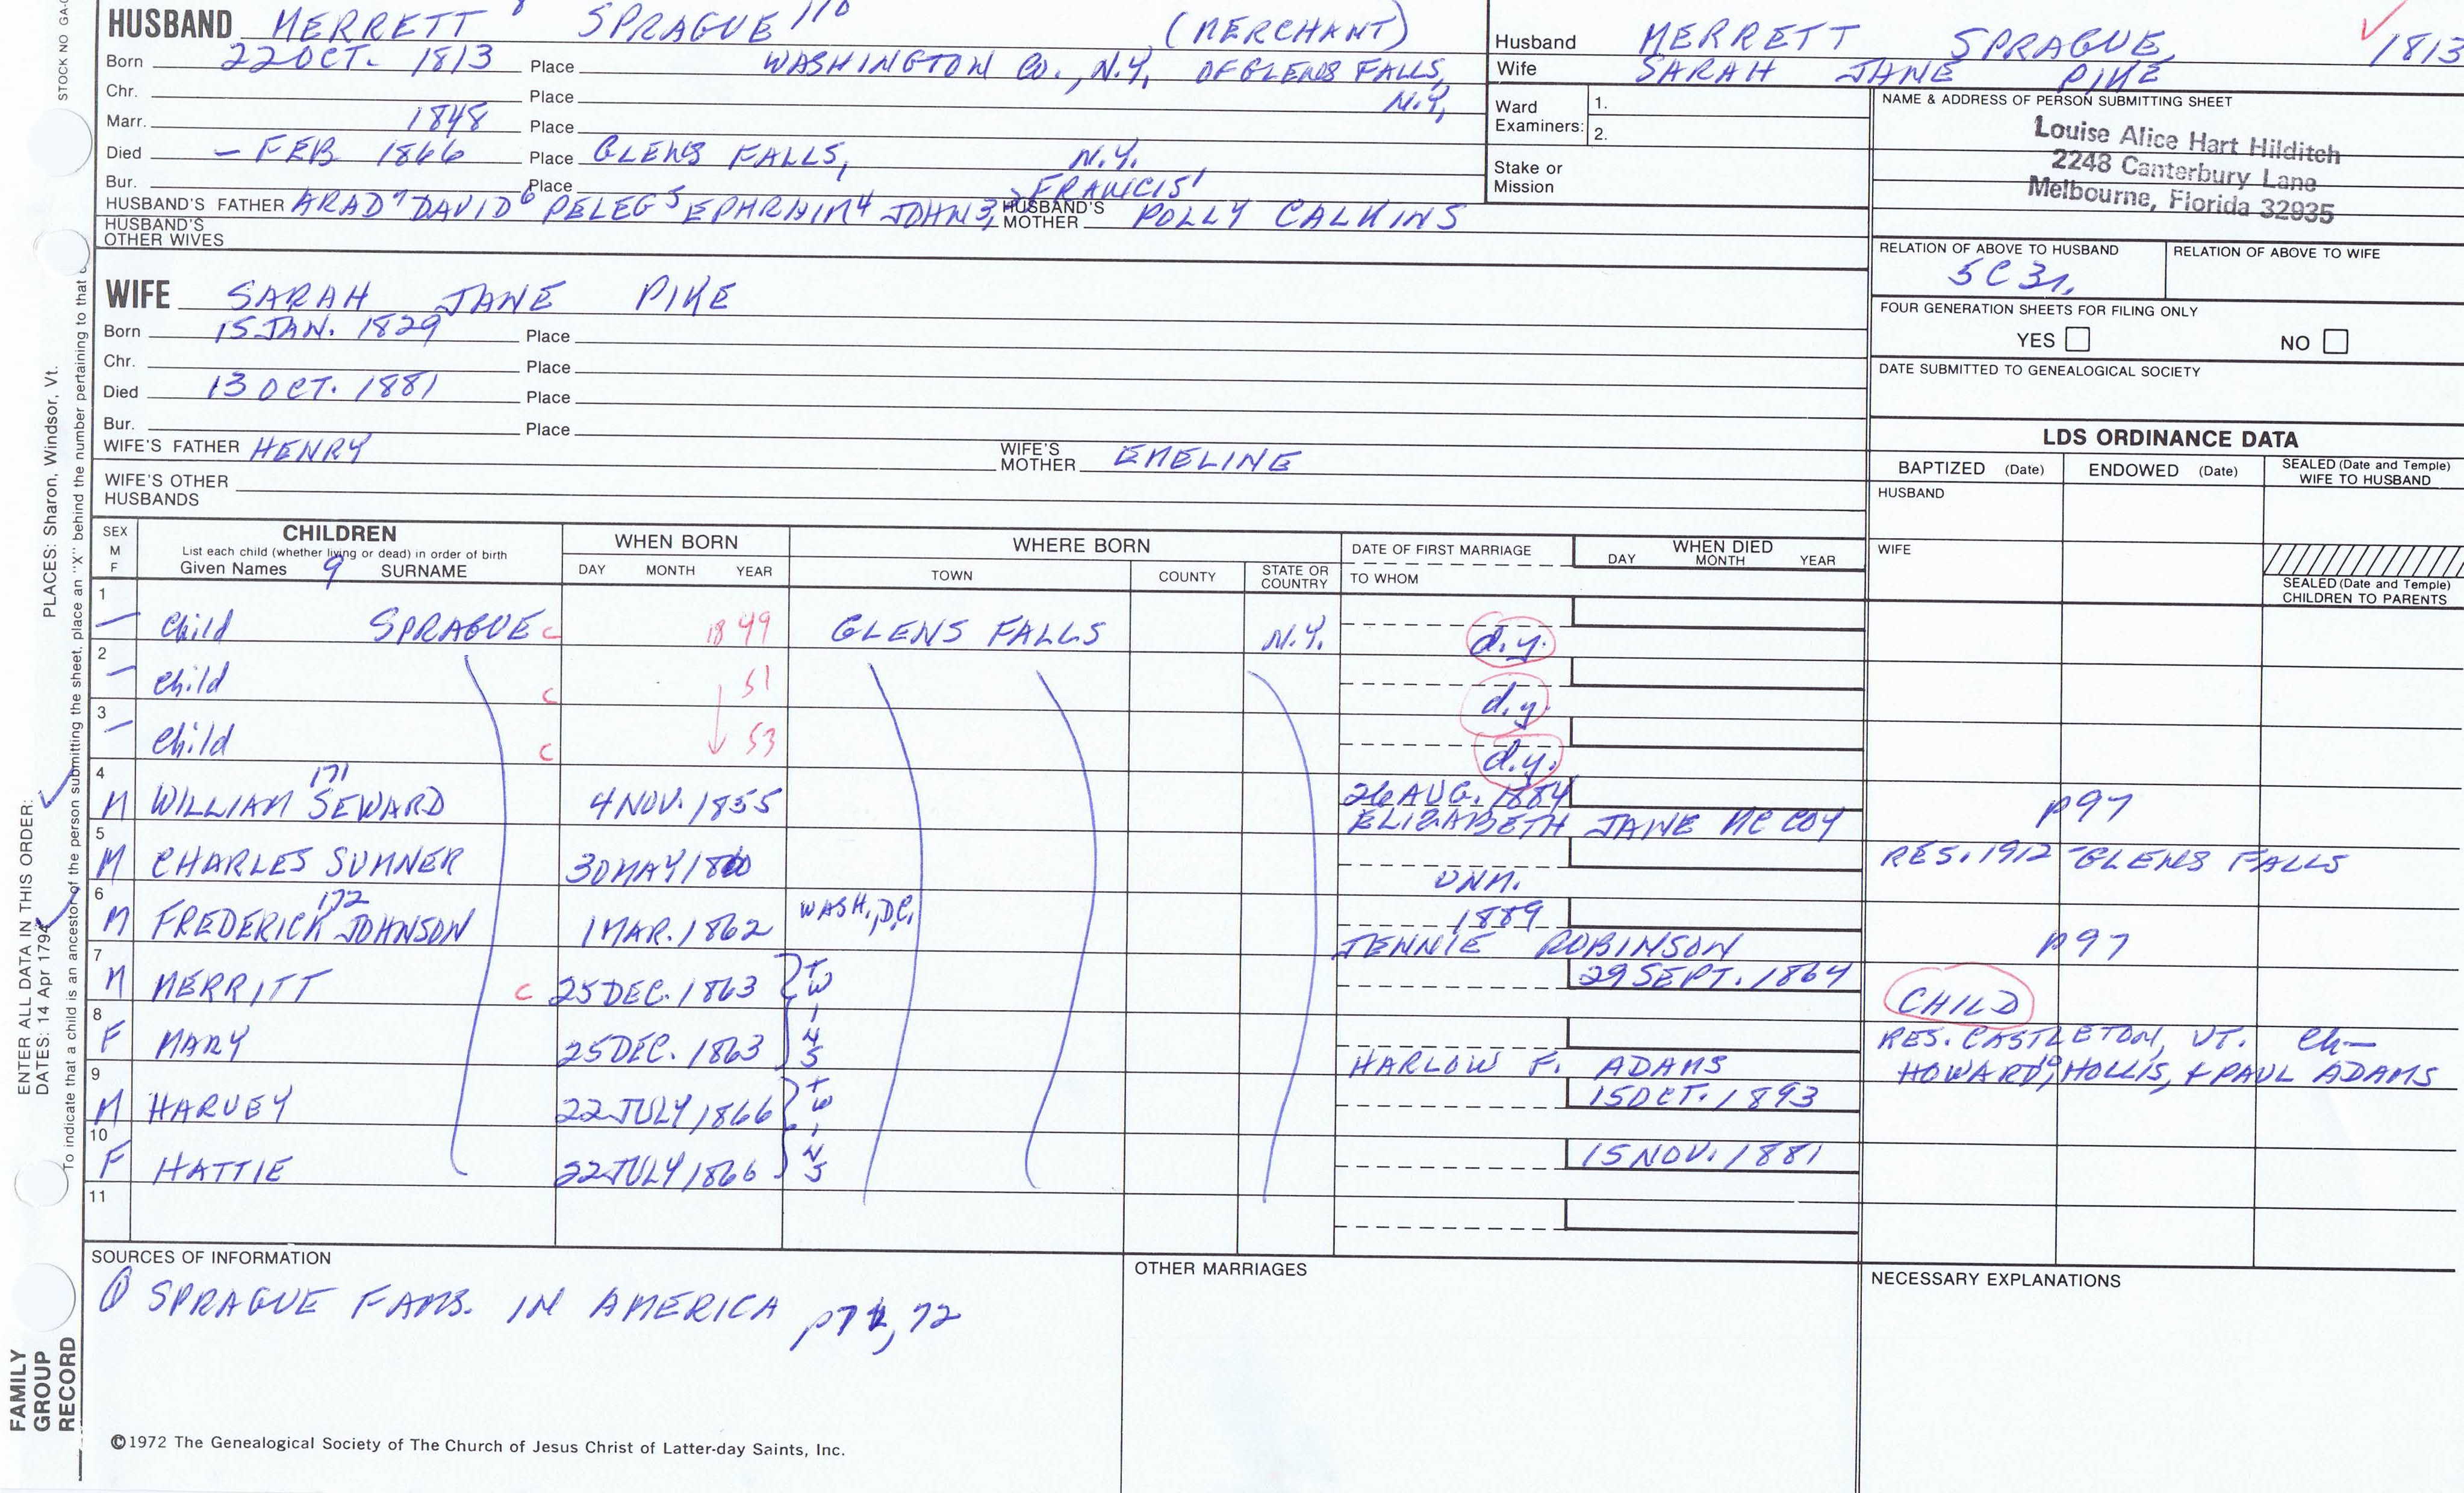 STOCK NO GA-
HUSBAND MERRETT 8 SPRAGUE 110 (MERCHANT)
Born 22 OCT. 1813 Place WASHINGTON CO., N.Y. OF GLENS FALLS,
Chr. Place N.Y.
Marr. 1848 Place
Died - FEB 1866 Place GLENS FALLS, N.Y.
Bur. Place
HUSBAND'S FATHER ARAD 7 DAVID 6 PELEG 5 EPHRAIM 4 JOHN 3, 2 FRANCIS 1 HUSBAND'S MOTHER POLLY CALKINS
HUSBAND'S OTHER WIVES
WIFE SARAH JANE PIKE
Born 15 JAN. 1829 Place
Chr. Place
Died 13 OCT. 1881 Place
Bur. Place
WIFE'S FATHER HENRY WIFE'S MOTHER EMELINE
WIFE'S OTHER HUSBANDS
Husband MERRETT SPRAGUE ✓ 1813
Wife SARAH JANE PIKE
Ward Examiners: 1.
2.
Stake or Mission
NAME & ADDRESS OF PERSON SUBMITTING SHEET
Louise Alice Hart Hilditch
2248 Canterbury Lane
Melbourne, Florida 32935
RELATION OF ABOVE TO HUSBAND RELATION OF ABOVE TO WIFE
5C3r.
FOUR GENERATION SHEETS FOR FILING ONLY
YES NO
DATE SUBMITTED TO GENEALOGICAL SOCIETY
LDS ORDINANCE DATA
BAPTIZED (Date) ENDOWED (Date) SEALED (Date and Temple) WIFE TO HUSBAND
HUSBAND
WIFE
SEALED (Date and Temple) CHILDREN TO PARENTS
SEX M F CHILDREN WHEN BORN WHERE BORN DATE OF FIRST MARRIAGE WHEN DIED
List each child (whether living or dead) in order of birth
Given Names 9 SURNAME DAY MONTH YEAR TOWN COUNTY STATE OR COUNTRY TO WHOM DAY MONTH YEAR
1 - Child SPRAGUE C 1849 GLENS FALLS N.Y. d.y.
2 - Child C 51 d.y.
3 - Child C 53 d.y.
4 M WILLIAM SEWARD 171 4 NOV. 1855 26 AUG. 1884 ELIZABETH JANE MC COY p97
5 M CHARLES SUMNER 30 MAY 1860 UNM. RES. 1912 - GLENS FALLS
6 M FREDERICK JOHNSON 172 1 MAR. 1862 WASH., D.C. 1889 JENNIE ROBINSON p97
7 M MERRITT C 25 DEC. 1863 29 SEPT. 1864 CHILD
8 F MARY 25 DEC. 1863 TWINS HARLOW F. ADAMS RES. CASTLETON, VT. Ch-
HOWARD 10, HOLLIS, & PAUL ADAMS
9 M HARVEY 22 JULY 1866 15 OCT. 1893
10 F HATTIE 22 JULY 1866 TWINS 15 NOV. 1881
11
SOURCES OF INFORMATION
① SPRAGUE FAMS. IN AMERICA p71, 72
OTHER MARRIAGES
NECESSARY EXPLANATIONS
©1972 The Genealogical Society of The Church of Jesus Christ of Latter-day Saints, Inc.
FAMILY
GROUP
RECORD
ENTER ALL DATA IN THIS ORDER:
DATES: 14 Apr 1794
PLACES: Sharon, Windsor, Vt.
To indicate that a child is an ancestor of the person submitting the sheet, place an "X" behind the number pertaining to that